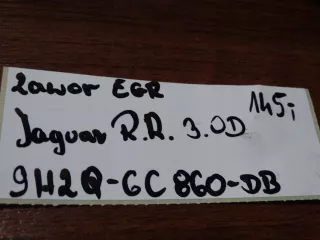 Zawor EGR 145,-
Jaguar R.R. 3.0D
9H2Q-6C860-DB